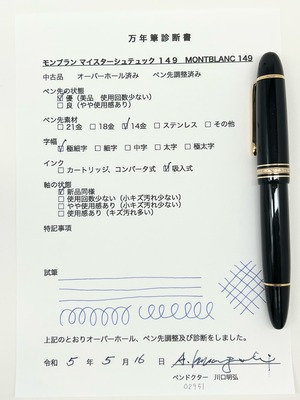 万年筆診断書
モンブラン マイスターシュテュック 149 MONTBLANC 149
中古品 オーバーホール済み ペン先調整済み
ペン先の状態
☑優（美品 使用回数少ない）
☐良（やや使用感あり）
ペン先素材
☐21金 ☐18金 ☑14金 ☐ステンレス ☐その他
字幅
☑極細字 ☐細字 ☐中字 ☐太字 ☐極太字
インク
☐カートリッジ、コンバータ式 ☑吸入式
軸の状態
☑新品同様
☐使用回数少ない（小キズ汚れ少ない）
☐やや使用感あり（小キズ汚れ少ない）
☐使用感あり（キズ汚れ多い）
特記事項
試筆
上記のとおりオーバーホール、ペン先調整及び診断をしました。
令和 5 年 5 月 16 日
ペンドクター 川口明弘